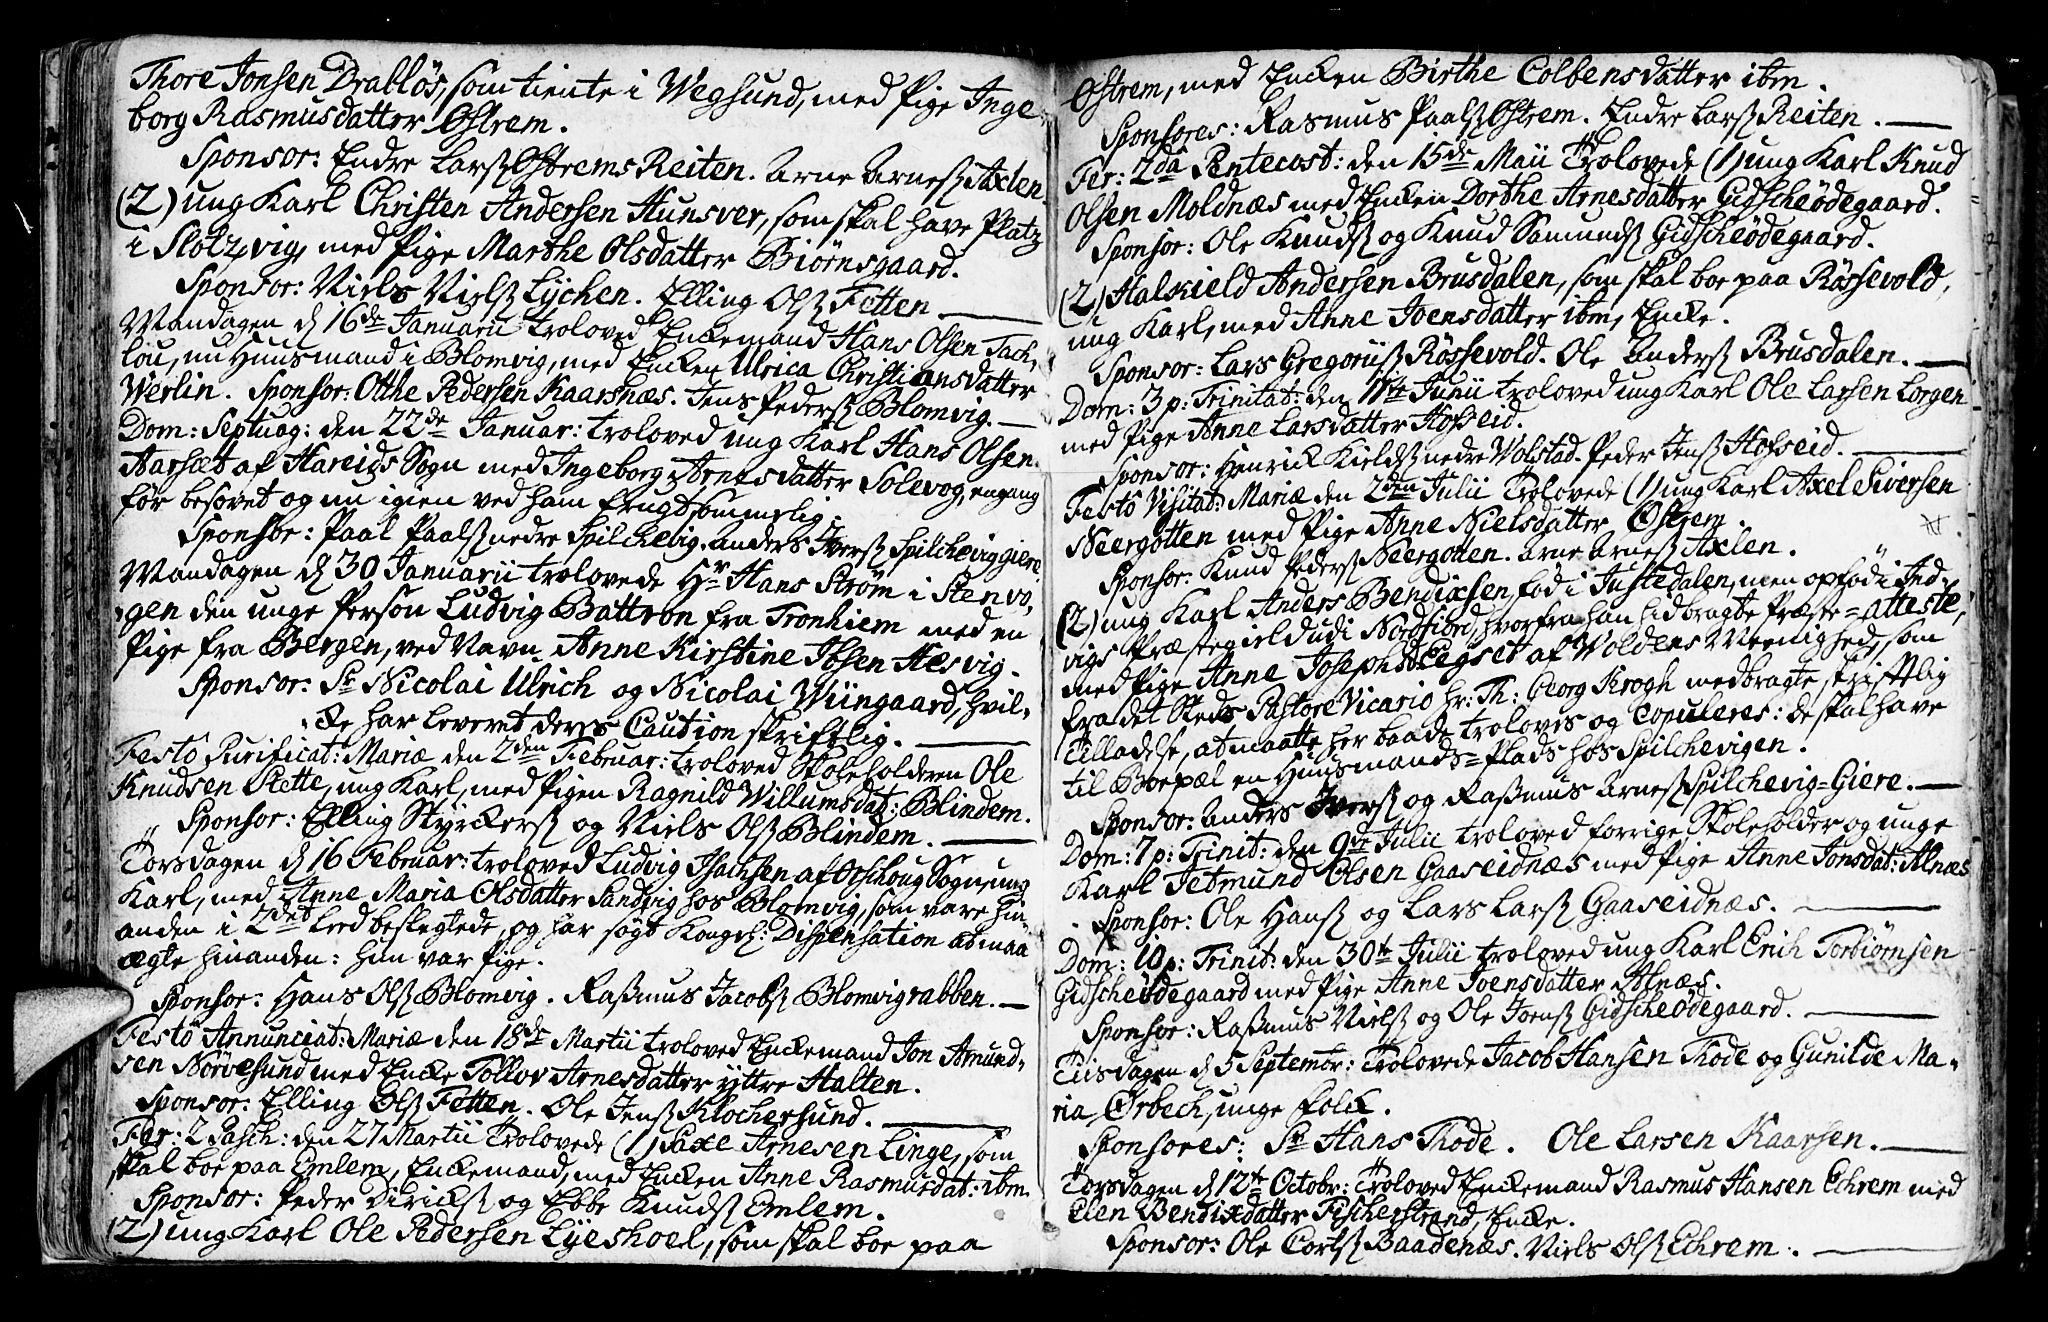 Thore Jonsen Drabløs, som tiente i Wegsund, med Pige Inge-
borg Rasmusdatter Østrem.
Sponsor: Endre Larsß Østrems Reiten. Arne Arneß Axlen.
(2) ung Karl Christen Andersen Hunsver, som skal have Platz
i Slotzvig, med Pige Marthe Olsdatter Biørnsgaard.
Sponsor: Niels Nielß Lychen. Elling Olß Fetten
Mandagen d 16de Januarii troloved Enckemand Hans Olsen Tach,
lou, nu Huusmand i Blomvig, med Encken Ulrica Christiansdatter
Werlin. Sponsor: Otthe Pedersen Kaarsnæs. Jens Pederß Blomvig.
Dom: Septuag: den 22de Januar: troloved ung Karl Hans Olsen
Aarsæt af Hareids Sogn med Ingeborg Arnesdatter Solevog, engang
før besovet og nu igien ved ham frugtsommelig.
Sponsor: Paal Paalß nedre Spilchevig. Anders Iverß Spilchevig giere.
Mandagen d 30 Januarii trolovede Hr Hans Strøm i Stenvo,
gen den unge Person Ludvig Battron fra Tronhiem med en
Pige fra Bergen, ved Navn Anne Kirstine Ibsen Hesvig.
Sponsor: Sr Nicolai Ulrich og Nicolai Wiingaard, hvil-
cke har leveret deres Caution skriftlig.
Festo Purificat: Mariæ den 2den Februar: troloved Skoleholderen Ole
Knudsen Slette, ung Karl, med Pigen Ragnild Willumsdat: Blindem.
Sponsor: Elling Styrckerß og Niels Olß Blindem.
Torsdagen d 16 Februar: troloved Ludvig Isachsen af Orschoug Sogn, ung
Karl, med Anne Maria Olsdatter Sandvig hos Blomvig, som vare hin
anden i 2det Leed beslegtede, og har søgt Kongel: Dispensation at maa
ægte hinanden: hun var Pige.
Sponsor: Hans Olß Blomvig. Rasmus Jacobß Blomvigrabben.
Festo Annunciat: Mariæ den 18de Martii troloved Enckemand Jon Amund-
sen Nørvesund med Encke Tollov Arnesdatter yttre Halten.
Sponsor: Elling Olß Fetten. Ole Jenß Klochersund.
Fer: 2 Pasch: den 27 Martii trolovede (1) Saxe Arnesen Linge, som
skal boe paa Emlem, Enckemand, med Encken Anne Rasmusdat: ibm.
Sponsor: Peder Dirickß og Ebbe Knudß Emlem.
(2) ung Karl Ole Pedersen Lyeshoel, som skal boe paa
Østrem, med Encken Birthe Colbensdatter ibm.
Sponsores: Rasmus Paalß Østrem. Endre Larß Reiten.
Fer: 2dâ Pentecost: den 15de Maii trolovede (1) ung Karl Knud
Olsen Moldnæs med Encken Dorthe Arnesdatter Gidscheødegaard.
Sponsor: Ole Knudß og Knud Samundß Gidscheødegaard.
(2) Halskield Andersen Brusdalen, som skal boe paa Røssevold,
ung Karl, med Anne Joensdatter ibm, Encke.
Sponsor: Lars Gregoriiß Røssevold. Ole Anderß Brusdalen.
Dom: 3 p: Trinitat: den 11te Junii troloved ung Karl Ole Larsen Lorgen
med Pige Anne Larsdatter Hofseid.
Sponsor: Henrick Kieldß nedre Wolstad. Peder Jenß Hofseid.
Festo Visitat: Mariæ den 2den Julii trolovede (1) ung Karl Axel Siversen
Neergotten med Pige Anne Nielsdatter Østrem.
Sponsor: Knud Pederß Neergotten. Arne Arneß Axlen.
(2) ung Karl Anders Bendixsen, fød i Justedalen, men opfød i Ind-
vigs Præstegield udi Nordfiord, hvorfra han hidbragte Præste-atteste,
med Pige Anne Josephsd: Egset af Woldens Meenighed, som
fra det Steds Pastore Vicario hr: Th: Georg Krogh medbragte skriftlig
Tilladelse, at maatte her baade troloves og Copuleres: de skal have
til Boepæl en Huusmands-Plads hos Spilchevigen.
Sponsor: Anders Iverß og Rasmus Arneß Spilchevig-Giere.
Dom: 7 p: Trinit: den 9de Julii troloved forrige Skoleholder og unge
Karl Jetmund Olsen Gaaseidnæs med Pige Anne Jonsdat: Alnæs
Sponsor: Ole Hanß og Lars Larß Gaaseidnæs.
Dom: 10 p: Trinit: den 30te Julii troloved ung Karl Erich Torbiørnsen
Gidscheødegaard med Pige Anne Joensdatter Alnæs.
Sponsor: Rasmus Nielß og Ole Joenß Gidscheødegaard.
Tiisdagen d 5 Septembr: trolovede Jacob Hansen Thode og Gunilde Ma-
ria Ørbech, unge Folck.
Sponsores: Sr Hans Thode. Ole Larsen Kaarsen.
Torsdagen d 12te Octobr: troloved Enckemand Rasmus Hansen Echrem med
Elen Bendixdatter Fischerstrand, Encke.
Sponsor: Ole Corlß Baadenæs. Niels Olß Echrem.